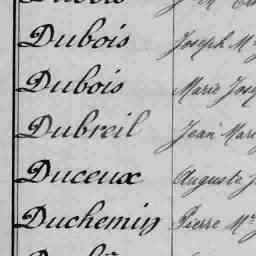 Dubois Joseph M
Dubois Marie Jose
Dubreil Jean Mari
Duceux Auguste J
Duchemin Pierre M